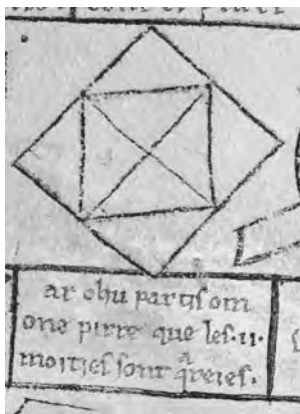 ar chu partisom
one pirre que les .ii.
moities sont qareies.